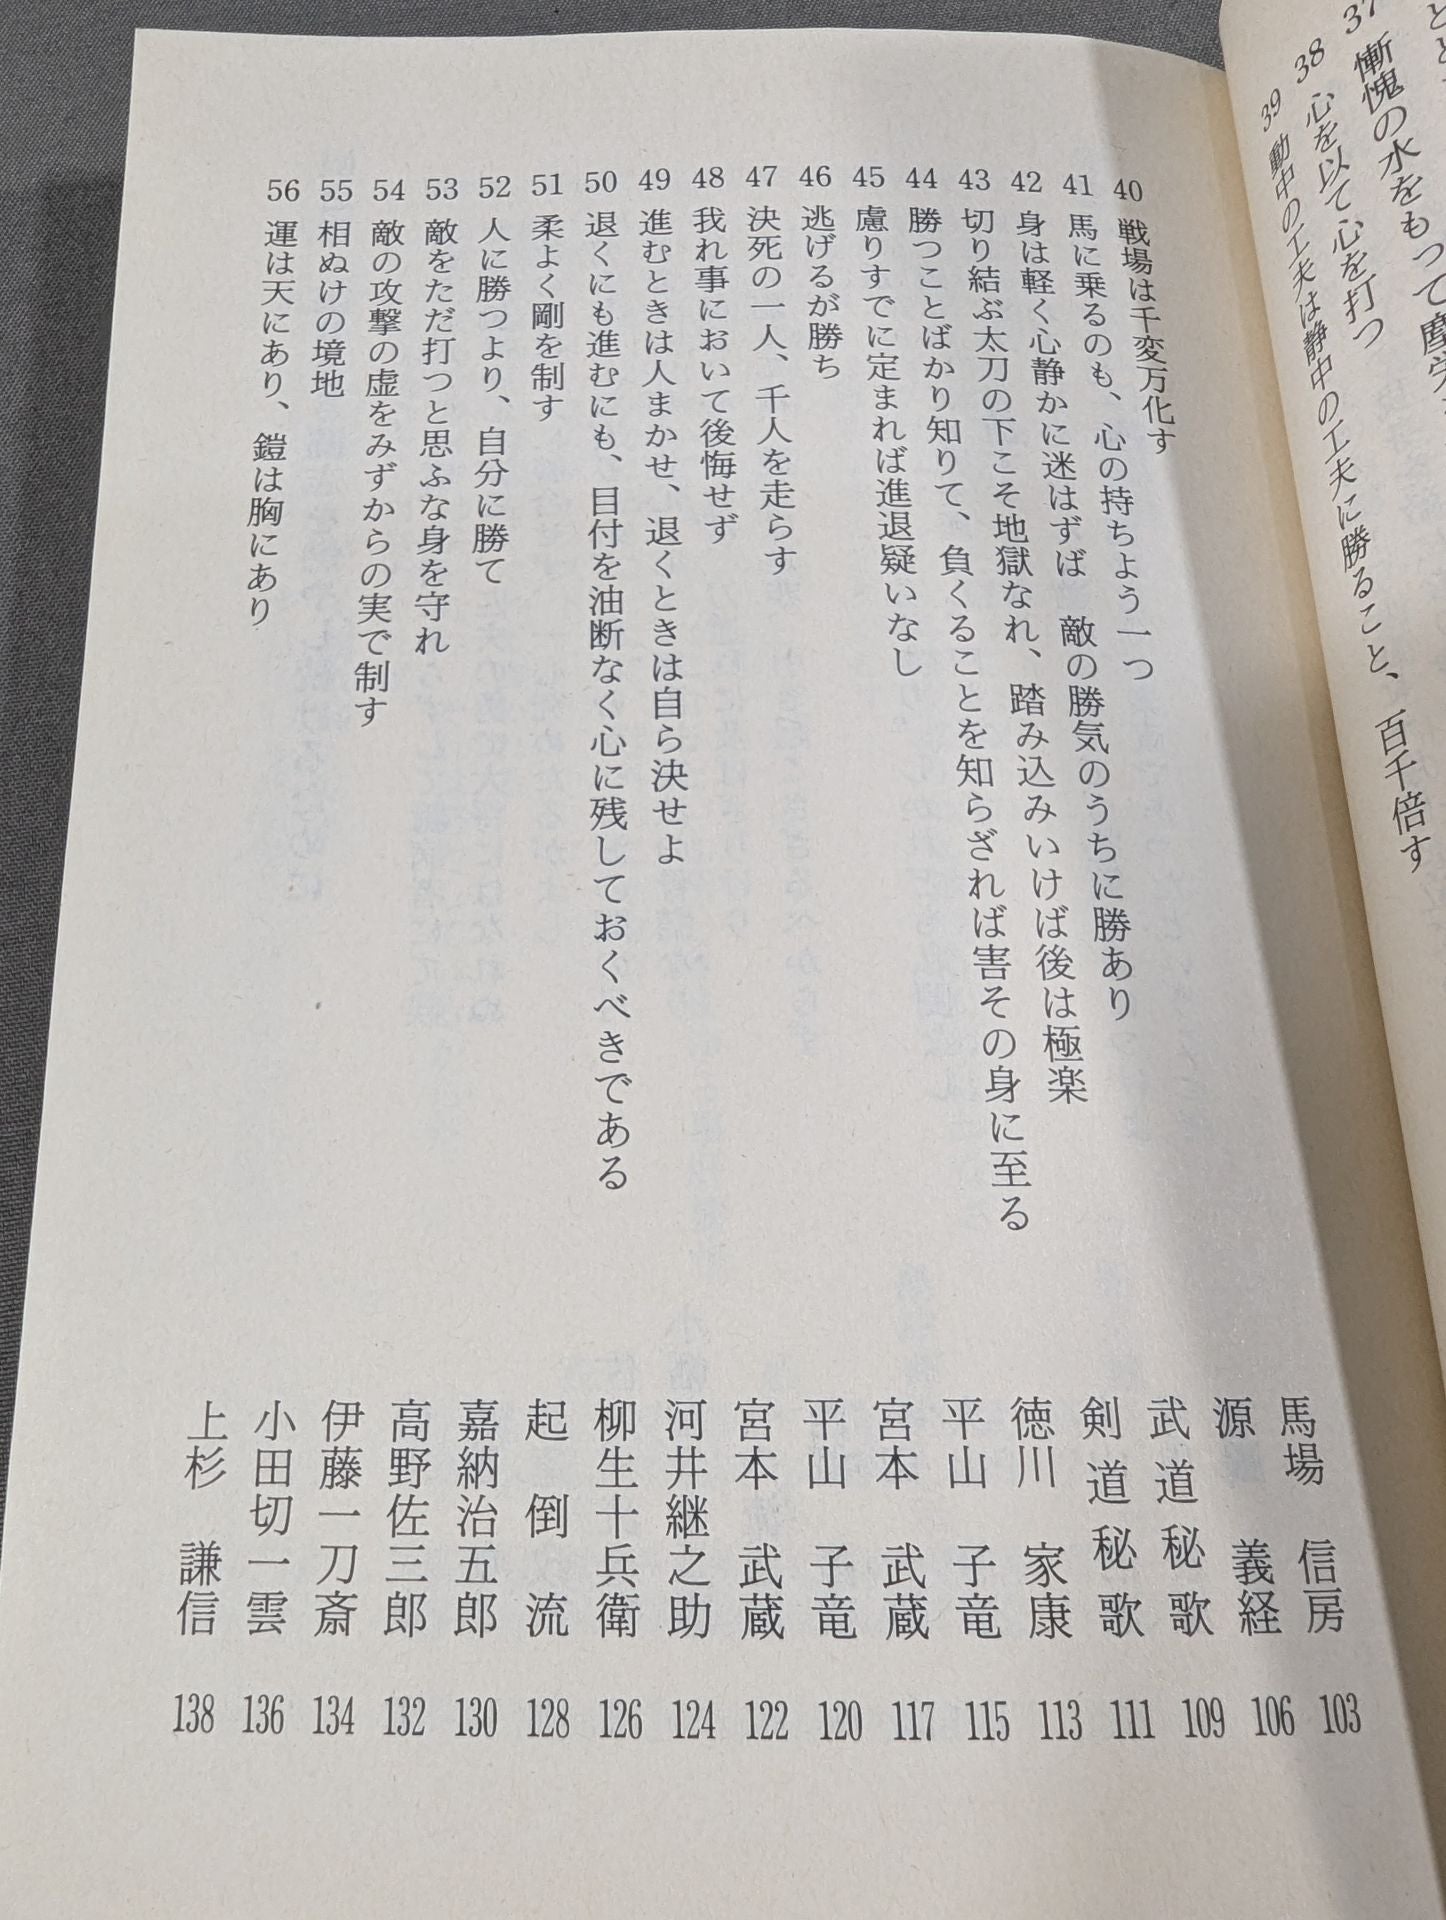 37 慚愧の水をもって摩
38 心を以て心を打つ
39 動中の工夫は静中の工夫に勝ること、百千倍す
40 戦場は千変万化す 馬場 信房 103
41 馬に乗るのも、心の持ちよう一つ 源 義経 106
42 身は軽く心静かに迷はずば 敵の勝気のうちに勝あり 武道秘歌 109
43 切り結ぶ太刀の下こそ地獄なれ、踏み込みいけば後は極楽 剣道秘歌 111
44 勝つことばかり知りて、負くることを知らざれば害その身に至る 徳川 家康 113
45 慮りすでに定まれば進退疑いなし 平山 子竜 115
46 逃げるが勝ち 宮本 武蔵 117
47 決死の一人、千人を走らす 平山 子竜 120
48 我れ事において後悔せず 宮本 武蔵 122
49 進むときは人まかせ、退くときは自ら決せよ 河井継之助 124
50 退くにも進むにも、目付を油断なく心に残しておくべきである 柳生十兵衛 126
51 柔よく剛を制す 起倒流 128
52 人に勝つより、自分に勝て 嘉納治五郎 130
53 敵をただ打つと思ふな身を守れ 高野佐三郎 132
54 敵の攻撃の虚をみずからの実で制す 伊藤一刀斎 134
55 相ぬけの境地 小田切一雲 136
56 運は天にあり、鎧は胸にあり 上杉 謙信 138